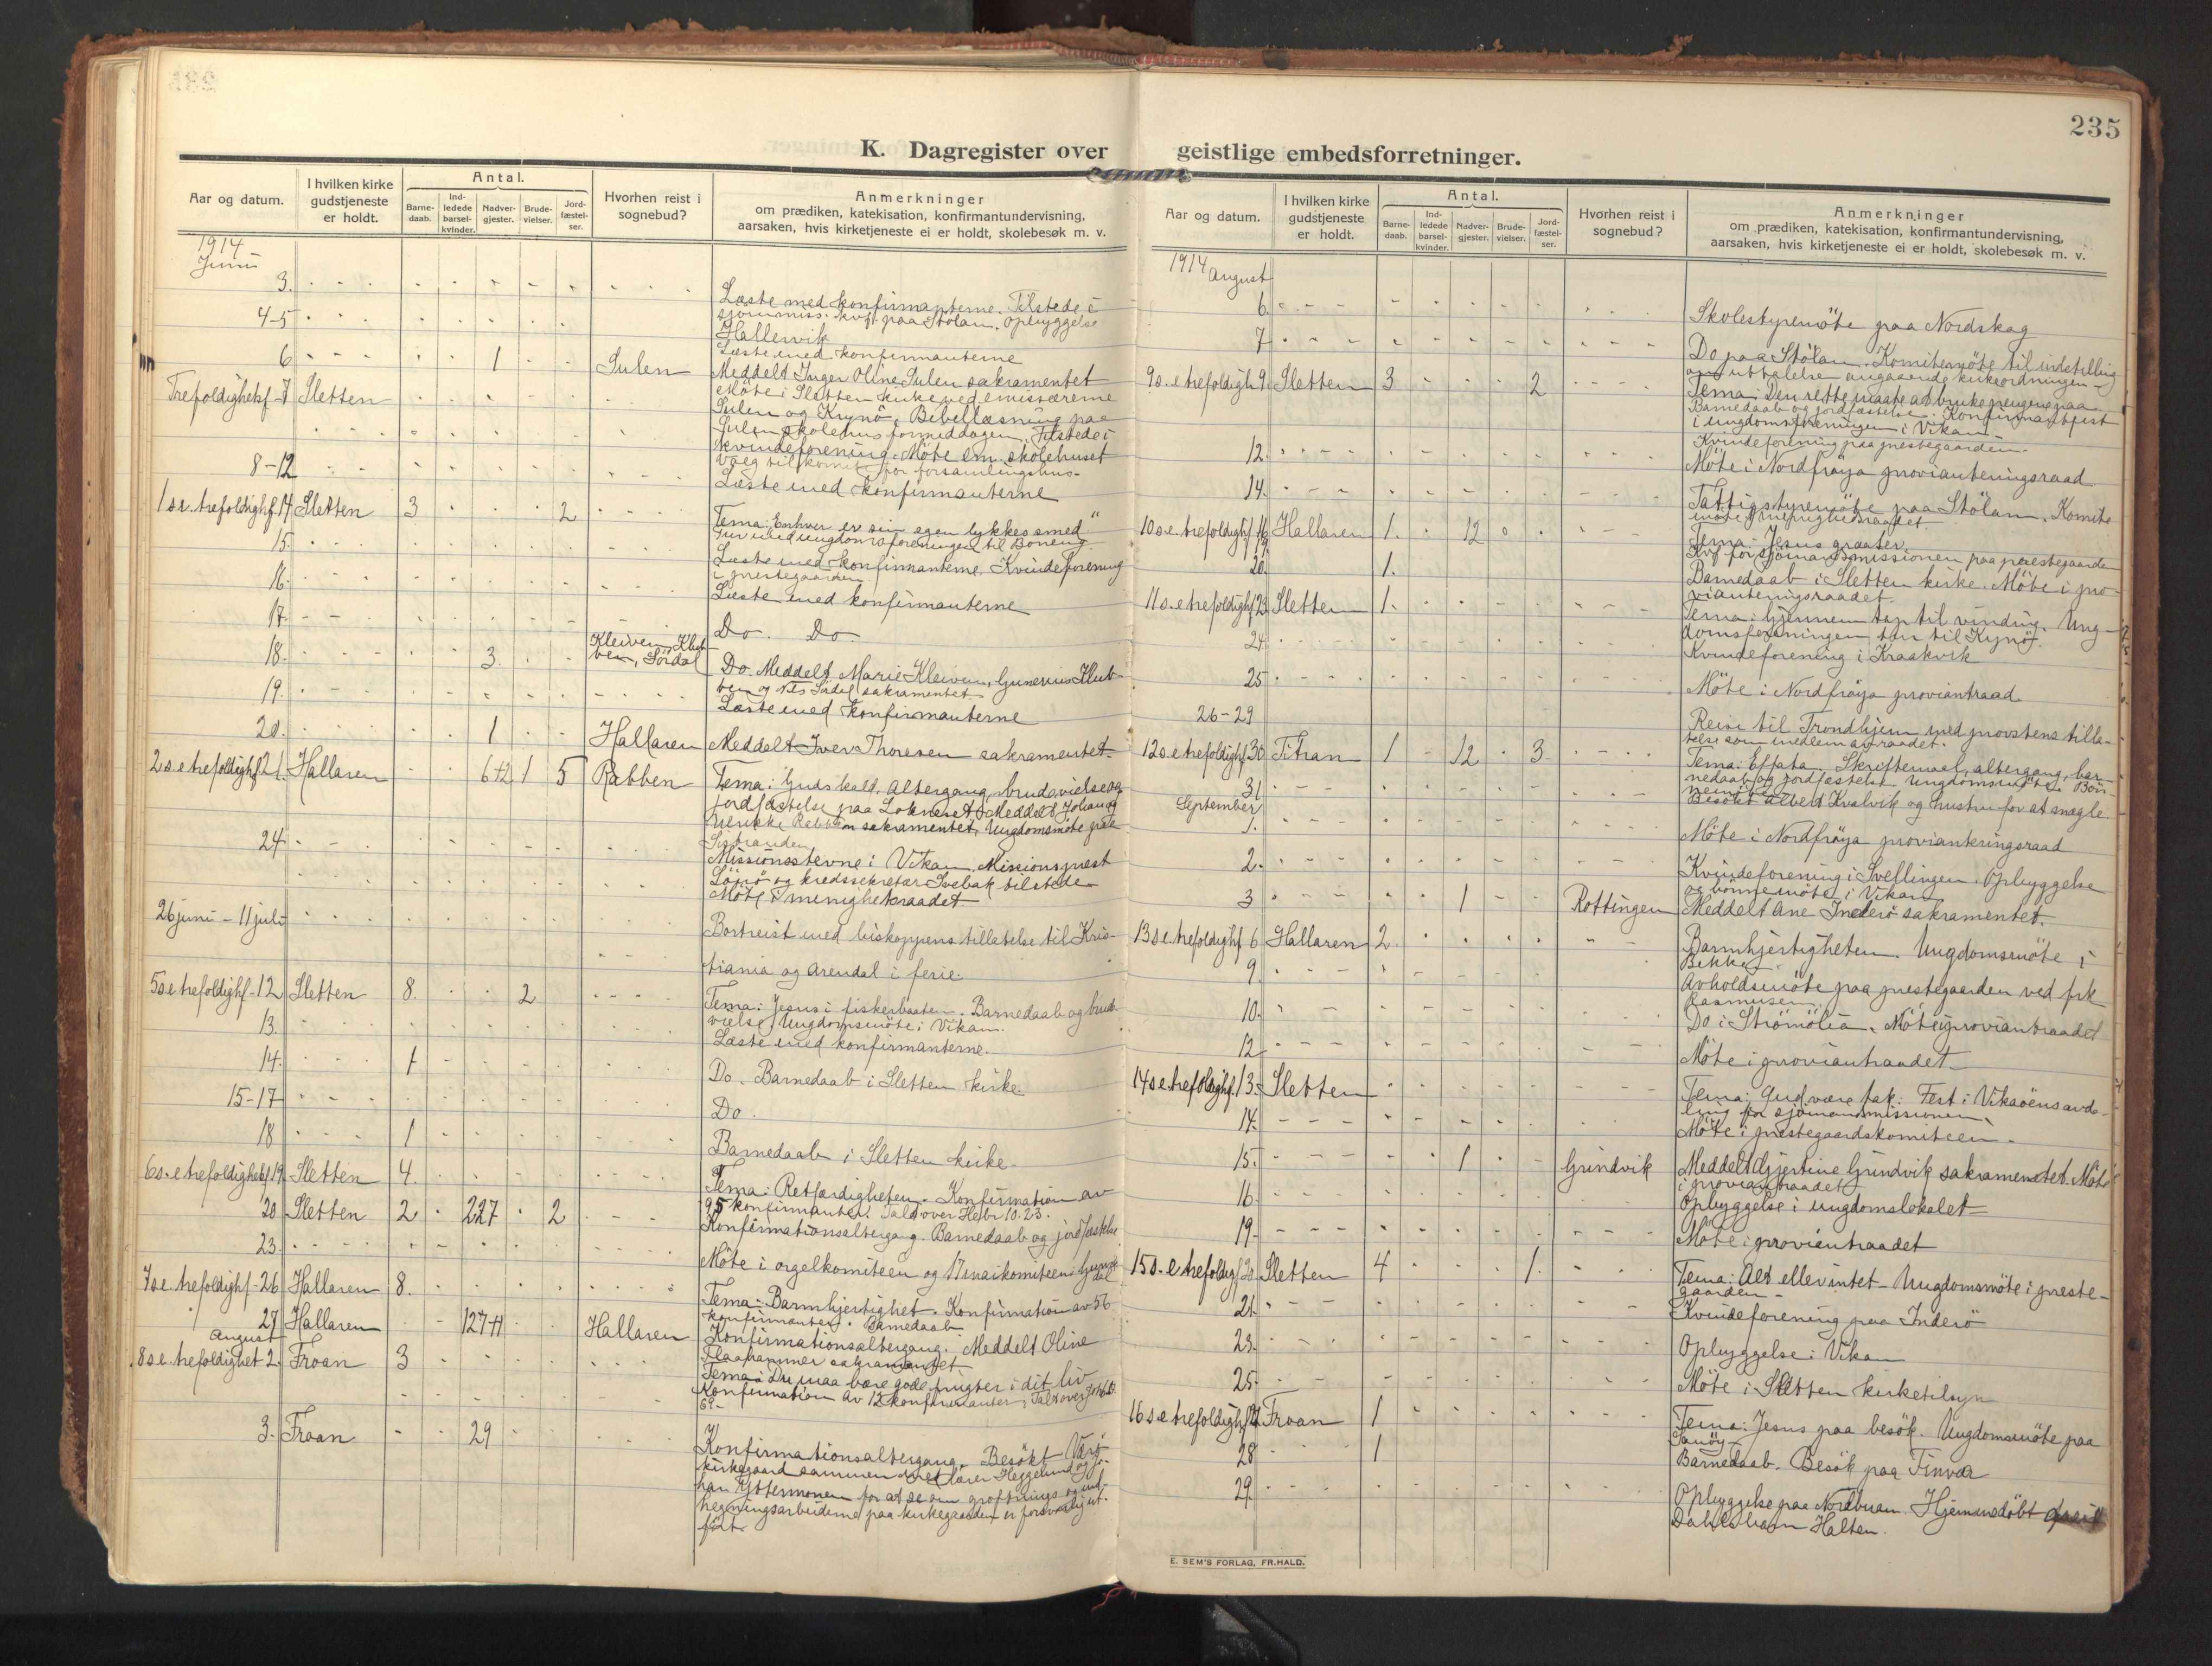 235
K. Dagregister over geistlige embedsforretninger.
Aar og datum.
I hvilken kirke gudstjeneste er holdt.
Antal.
Barnedaab.
Indledede barselkvinder.
Nadvergjester.
Brudevielser.
Jordfæstelser.
Hvorhen reist i sognebud?
Anmerkninger
om prædiken, katekisation, konfirmantundervisning,
aarsaken, hvis kirketjeneste ei er holdt, skolebesøk m. v.
1914
Juni
3.
Læste med konfirmanterne. Tilstede i
sjømmiss. kvf. paa Stölan. Opbyggelse
4-5
Hallervik
Læste med konfirmanterne
6 1 Sulen
Meddelt Inger Oline Sulen sakramentet
Trefoldighetsf-7 Sletten
Möte i Sletten kirke ved emissærerne
Sulen og Kynö. Bibellæsning paa
Sulen skolehus formiddagen. Tilstede i
kvindeforening. Möte em. skolehuset
valg til komite for forsamlingshus.
8-12
Læste med konfirmanterne
1 s.e. trefoldighf. 14 Sletten 3 2
Tema: Enhver er sin egen lykkes smed"
Tur med ungdomsforeningen til Boneng
15.
Læste med konfirmanterne. Kvindeforening
i prestegaarden.
16.
Læste med konfirmanterne
17.
Do. Do.
18. 3. Kleiven, Klubben, Sördal
Do. Meddelt Marie Kleiven, Gunerius Klubben
og Nils Sördal sakramentet
19.
Læste med konfirmanterne
20. 1 Hallaren
Meddelt Iver Thoresen sakramentet
2 s.e trefoldighf 21. Hallaren 6+2 1 5 Rabben
Tema: Guds kald. Altergang, brudevielse og
jordfæstelse paa Lokneset. Meddelt Johan og
Ulrikke Rabben sakramentet, Ungdomsmöte paa
Sistranden
24
Missionsstevne i Vikan. Missionsprest
og kredssekretær Svebak tilstede
Möte i menighetsraadet
26 juni - 11 juli
Bortreist med biskoppens tillatelse til Kristiania
og Arendal i ferie.
5 s.e trefoldighf-12 Sletten 8. 2
Tema: Jesus i fiskerbaaten. Barnedaab og brudevielse,
Ungdomsmöte i Vikan.
13.
Læste med konfirmanterne.
14. 1
Do. Barnedaab i Sletten kirke
15-17
Do.
18 1
Barnedaab i Sletten kirke.
6 s.e trefoldighetsf 19. Sletten 4.
Tema: Retfærdigheten. Konfirmation av
95 konfirmanter. Tald over Hebr 10.23.
20 Sletten 2 227 2
Konfirmationsaltergang. Barnedaab og jordfæstelse
23.
Möte i orgelkomiteen og 17 maikomiteen i
7 s.e. trefoldighf-26 Hallaren 8.
Tema: Barmhjertighet. Konfirmation av 56
konfirmanter. Barnedaab
27 Hallaren 127+1 Hallaren
Konfirmationsaltergang. Meddelt Oline
Flaahammer sakramentet
August
8 s.e. trefoldighet 2. Froan 3
Tema: Du maa bære gode frugter i dit liv
Konfirmation av 12 konfirmanter, Talt over Joh 6.
69.
3. Froan 29
Konfirmationsaltergang. Besökt Værö
kirkegaard sammen med lærer Heggelund og Johan
Yttermonen for at se om gröftnings og indhegningsarbeiderne
paa kirkegaarden er forsvarlig utfört.
Aar og datum.
I hvilken kirke gudstjeneste er holdt.
Antal.
Barnedaab.
Indledede barselkvinder.
Nadvergjester.
Brudevielser.
Jordfæstelser.
Hvorhen reist i sognebud?
Anmerkninger
om prædiken, katekisation, konfirmantundervisning,
aarsaken, hvis kirketjeneste ei er holdt, skolebesøk m. v.
1914 August
6.
Skolestyremöte paa Nordskag
7
Do paa Stölan. Komitemöte til indstilling
om uttalelse angaaende kirkeordningen
9 s.e trefoldigh 9. Sletten 3 2
Tema: Den rette maate at bruke pengene paa
Barnedaab og jordfæstelse. Konfirmantfest
i ungdomsforeningen i Vikan
Kvindeforening paa prestegaarden.
12.
Möte i Nordfröya provianteringsraad
14.
Fattigstyremöte paa Stölan. Komite
möte. menighedsraadet
10 s.e. trefoldighf 16 Hallaren 1. 12
Tema: Jesus graater
19.
Kvf for sjömandsmissionen paa prestegaarden
20. 1.
Barnedaab i Sletten kirke. Möte i provianteringsraadet.
11 s.e trefoldighf 23 Sletten 1.
Tema: Gjennem tap til vinding. Ungdomsforeningen
tur til Kynö.
24.
Kvindeforening i Kraakvik
25
Möte i Nordfröya proviantraad
26-29
Reise til Trondhjem med provstens tillatelse
som medlem av raadet.
12 s.e trefoldighf 30 Titran 1 12 3
Tema: Effata. Skriftemaal, altergang, barnedaab
og jordfæstelse. Ungdomsmöte. Bönnemöte
31
Besökt Albert Kvalvik og hustru for at mægle.
September
1.
Möte i Nordfröya provianteringsraad
2.
Kvindeforening i Svellingen. Opbyggelse
og bönnemöte i Vikan
3 1 Rottingen
Meddelt Ane Inderö sakramentet.
13 s.e. trefoldighf 6 Hallaren 2.
Barmhjertigheten. Ungdomsmöte i
Bekken
9.
Avholdsmöte paa prestegaarden ved frk
Rasmusen
10.
Do i Strömölia. Möte i proviantraadet
12
Möte i proviantraadet
14 s.e. trefoldighf. 13. Sletten
Tema: Gud være tak. Fest i Vikaöens avdeling
for sjömandsmissionen
14.
Möte i prestegaardskomiteen.
15. 1 Grindvik
Meddelt Gjertine Grindvik sakramentet. Möte
i proviantraadet
16.
Opbyggelse i ungdomslokalet
19.
Möte i proviantraadet
15 s.e trefoldigh 20. Sletten 4 1.
Tema: Alt eller intet. Ungdomsmöte i prestegaarden
21.
Kvindeforening paa Inderö
23.
Opbyggelse i Vikan
25.
Möte i Sletten kirketilsyn
16 s.e trefoldighf 27. Froan 1
Tema: Jesus paa besök. Ungdomsmöte paa
Sauöy
28 1
Barnedaab. Besök paa Finvær
29.
Opbyggelse paa Nordbuan. Hjemmedöbt
barn Halten.
E. SEM'S FORLAG, FR.HALD.